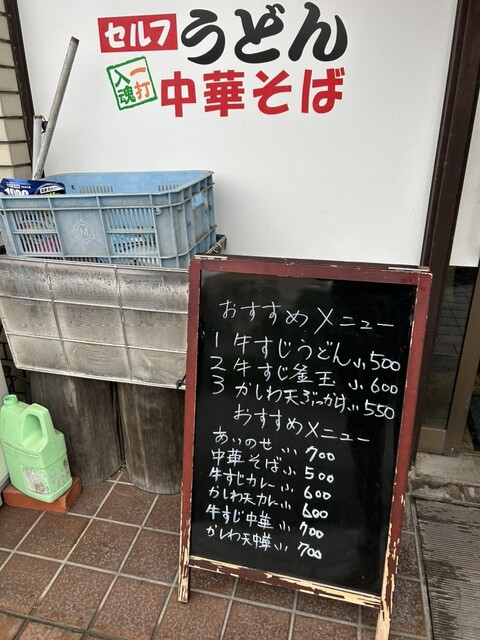 セルフ うどん
一打入魂 中華そば
おすすめメニュー
1 牛すじうどん小500
2 牛すじ釜玉 小600
3 かしわ天ぶっかけ小550
おすすめメニュー
あいのせ小700
中華そば小500
牛すじカレー小600
かしわ天カレー小600
牛すじ中華小700
かしわ天中華小700